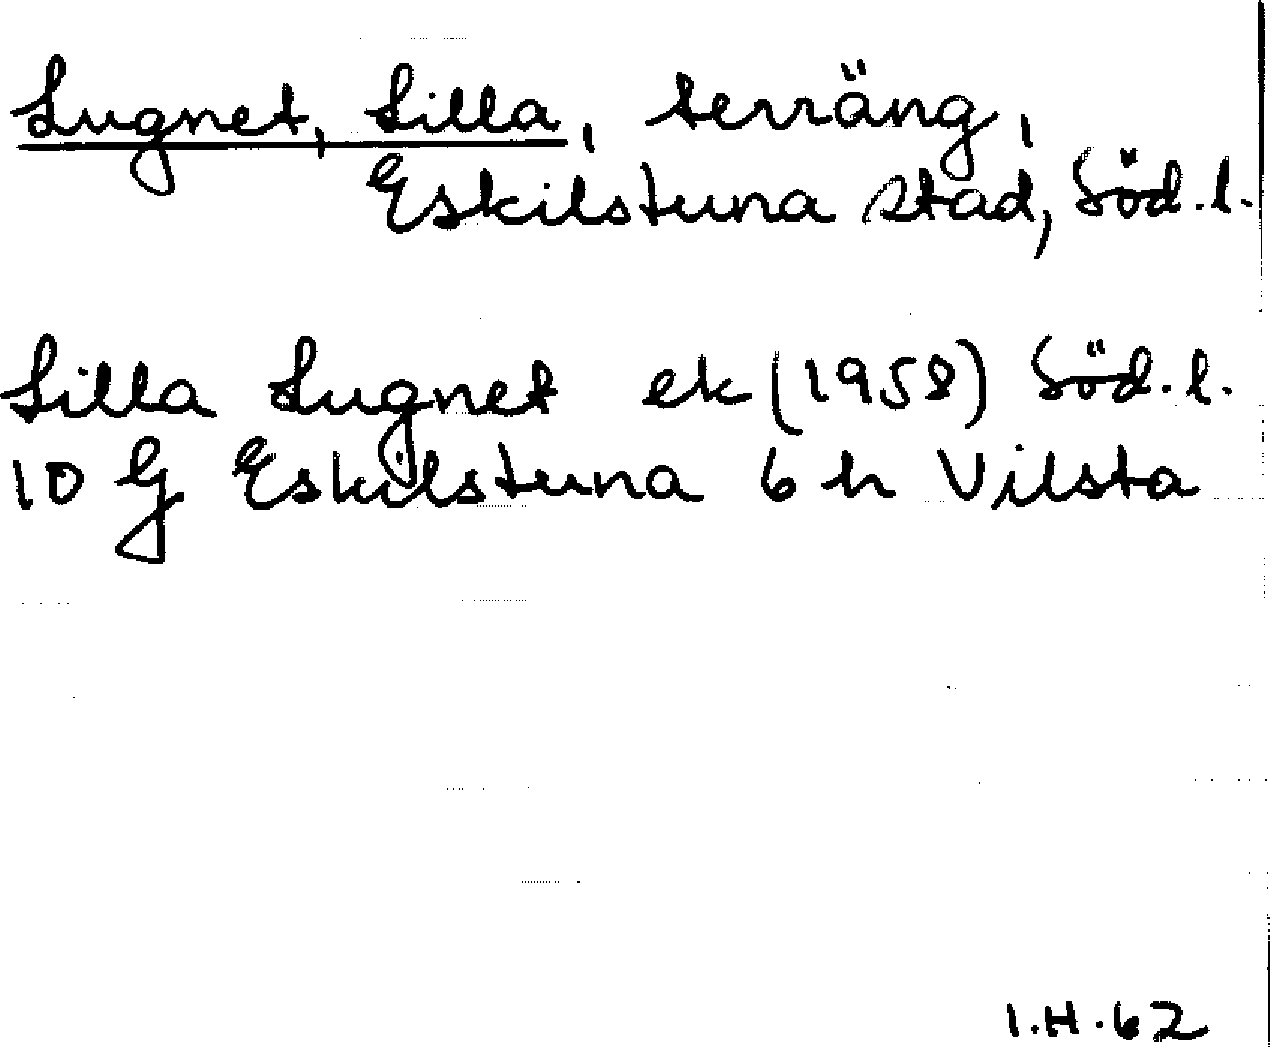 Lugnet, Lilla, terräng,
Eskilstuna stad, Söd.l.
Lilla Lugnet ek (1958) Söd.l.
10 G Eskilstuna 6 h Vilsta
I.H.62